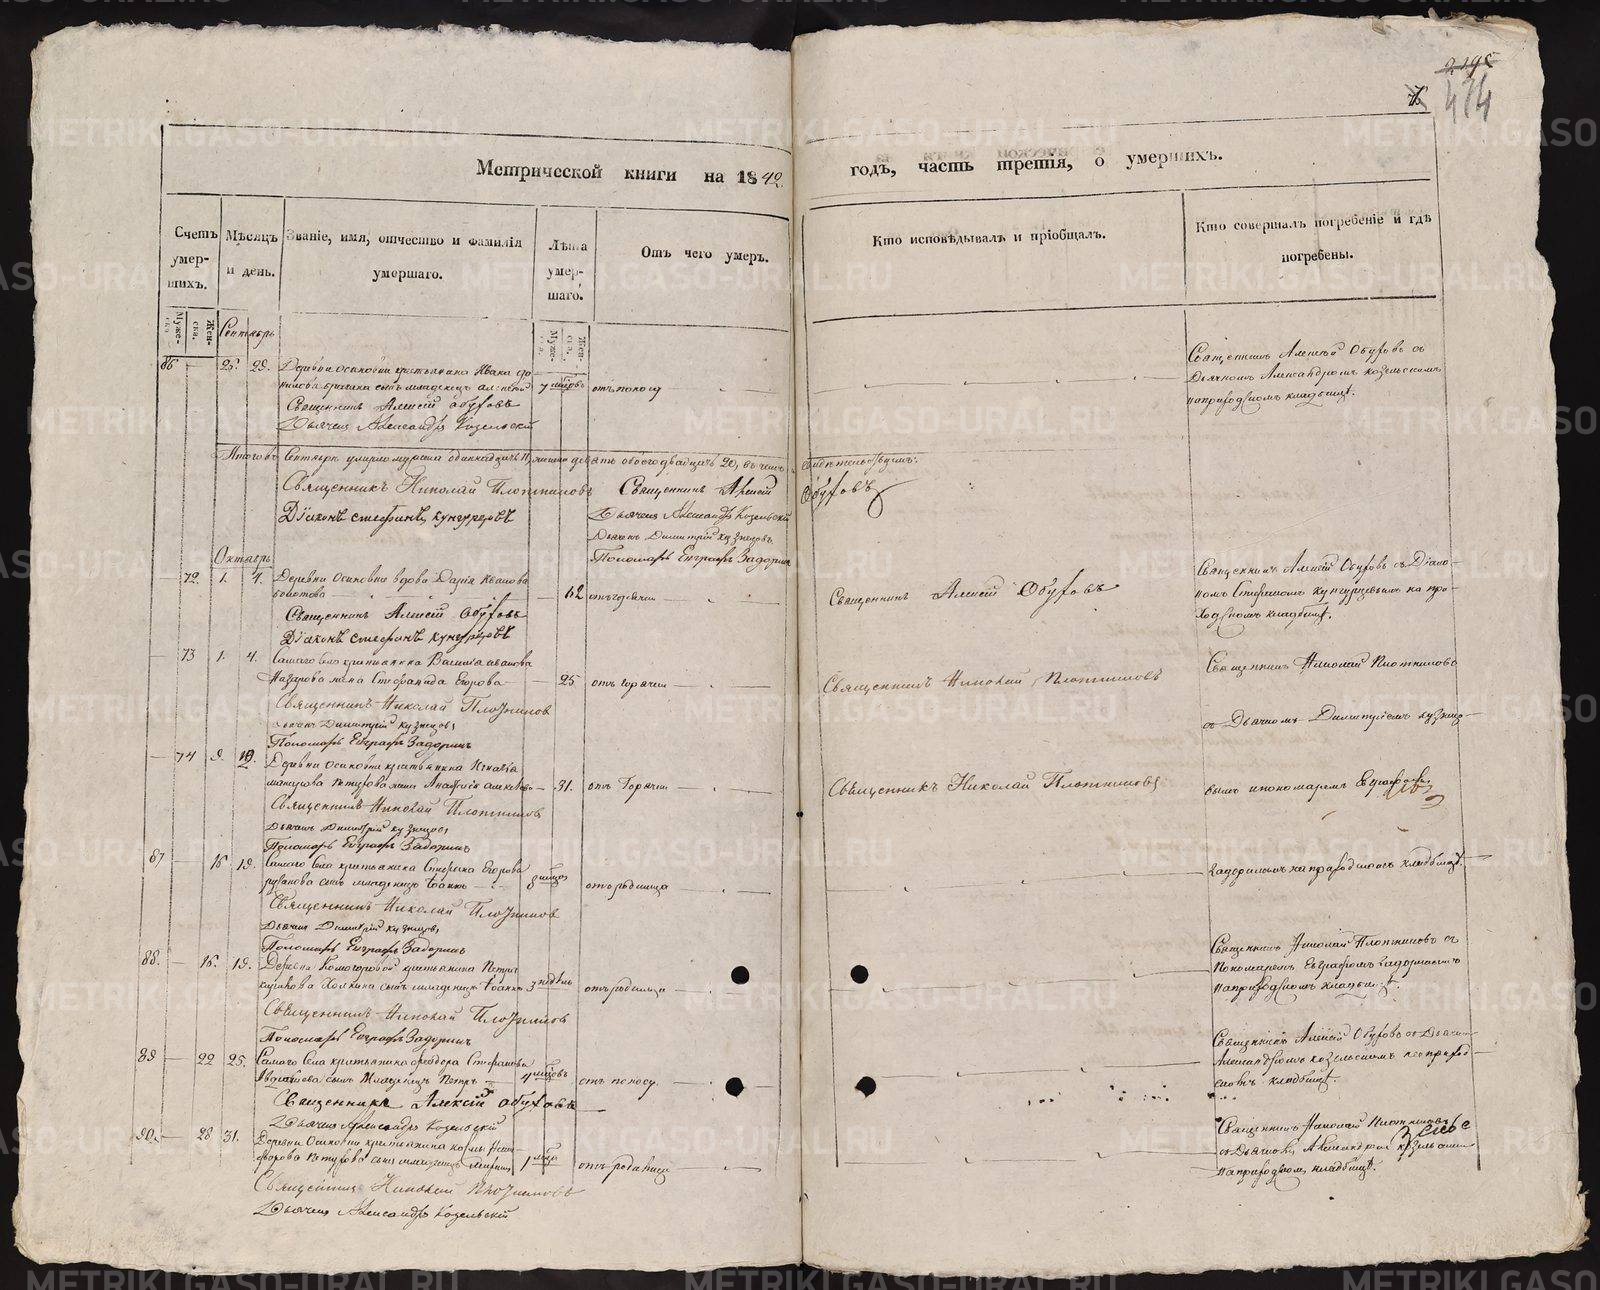 2195
474
Метрической книги на 1842
годъ, часть третія, о умершихъ.
Счетъ умер-шихъ.
Мѣсяцъ и день.
Званіе, имя, отчество и фамилія умершаго.
Лѣта умер-шаго.
Отъ чего умеръ.
Кто исповѣдывалъ и пріобщалъ.
Кто совершалъ погребеніе и гдѣ погребены.
Муже-ска.
Жен-ска.
Муже-ска.
Жен-ска.
Сентябрь
86 26. 29. Деревни Осиновки крестьянина Ивана
сынъ младенецъ Алексей 7 мѣсяцовъ отъ поносу
Священникъ Алексій Обуховъ
Дьячекъ Александръ Козельскій
Священникъ Алексій Обуховъ съ
Дьячкомъ Александромъ Козельскимъ
на приходскомъ кладбищѣ.
Итого въ Сентябрѣ умерло мужеска одиннадцать 11, женска девять обоего двадцать 20, въ чемъ свидѣтельствуемъ:
Священникъ Николай Плотниковъ
Священникъ Алексій Обуховъ
Діаконъ Стефанъ Кунгурцовъ
Дьячекъ Александръ Козельскій
Дьячекъ Димитрій Кузнецовъ
Пономарь Евграфъ Задоринъ
Октябрь
72. 1. 4. Деревни Осиновки вдова Дарья Иванова
Болотова 62 отъ горячки
Священникъ Алексій Обуховъ
Діаконъ Стефанъ Кунгурцовъ
Священникъ Алексій Обуховъ
Священникъ Алексій Обуховъ съ Діако-
номъ Стефаномъ Кунгурцовымъ на при-
ходскомъ кладбищѣ.
73 1. 4. Самаго села крестьянина Василія Иванова
Назарова жена Стефанида Егорова 25 отъ горячки
Священникъ Николай Плотниковъ
Дьячекъ Димитрій Кузнецовъ
Пономарь Евграфъ Задоринъ
Священникъ Николай Плотниковъ
Священникъ Николай Плотниковъ
съ Дьячкомъ Димитріемъ Кузнецо-
74 9. 12. Деревни Осиновки крестьянина Игнатія
Петухова жена Анастасія 31. отъ горячки
Священникъ Николай Плотниковъ
Дьячекъ Димитрій Кузнецовъ
Пономарь Евграфъ Задоринъ
Священникъ Николай Плотниковъ
вымъ и пономаремъ Евграфомъ
87 16. 19. Самаго села крестьянина Стефана Егорова
сынъ младенецъ Іоаннъ 8 мѣсяц отъ родимца
Священникъ Николай Плотниковъ
Дьячекъ Димитрій Кузнецовъ
Пономарь Евграфъ Задоринъ
Задоринымъ на приходскомъ кладбищѣ.
88. 16. 19. Деревни крестьянина Петра
сынъ младенецъ Іоаннъ 3 недѣль отъ родимца
Священникъ Николай Плотниковъ
Пономарь Евграфъ Задоринъ
Священникъ Николай Плотниковъ съ
Пономаремъ Евграфомъ Задоринымъ
на приходскомъ кладбищѣ.
89 22 25. Самаго села крестьянина Феодора Стефанова
сынъ младенецъ Петръ 4 мѣсяцовъ отъ поносу
Священникъ Алексій Обуховъ
Дьячекъ Александръ Козельскій
Священникъ Алексій Обуховъ съ Дьячк
Александромъ Козельскимъ на приход-
скомъ кладбищѣ.
90. 28 31. Деревни Осиновки крестьянина
Петухова сынъ младенецъ 1 мѣсяца отъ родимца
Священникъ Николай Плотниковъ
Дьячекъ Александръ Козельскій
Священникъ Николай Плотниковъ
съ Дьячкомъ Александромъ Козельскимъ
на приходскомъ кладбищѣ.
METRIKI.GASO-URAL.RU